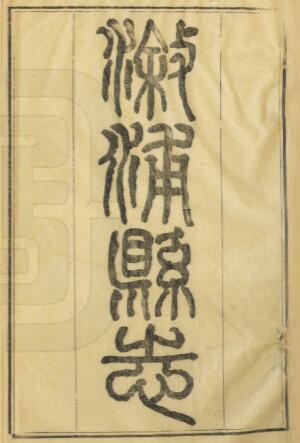 溆浦縣志